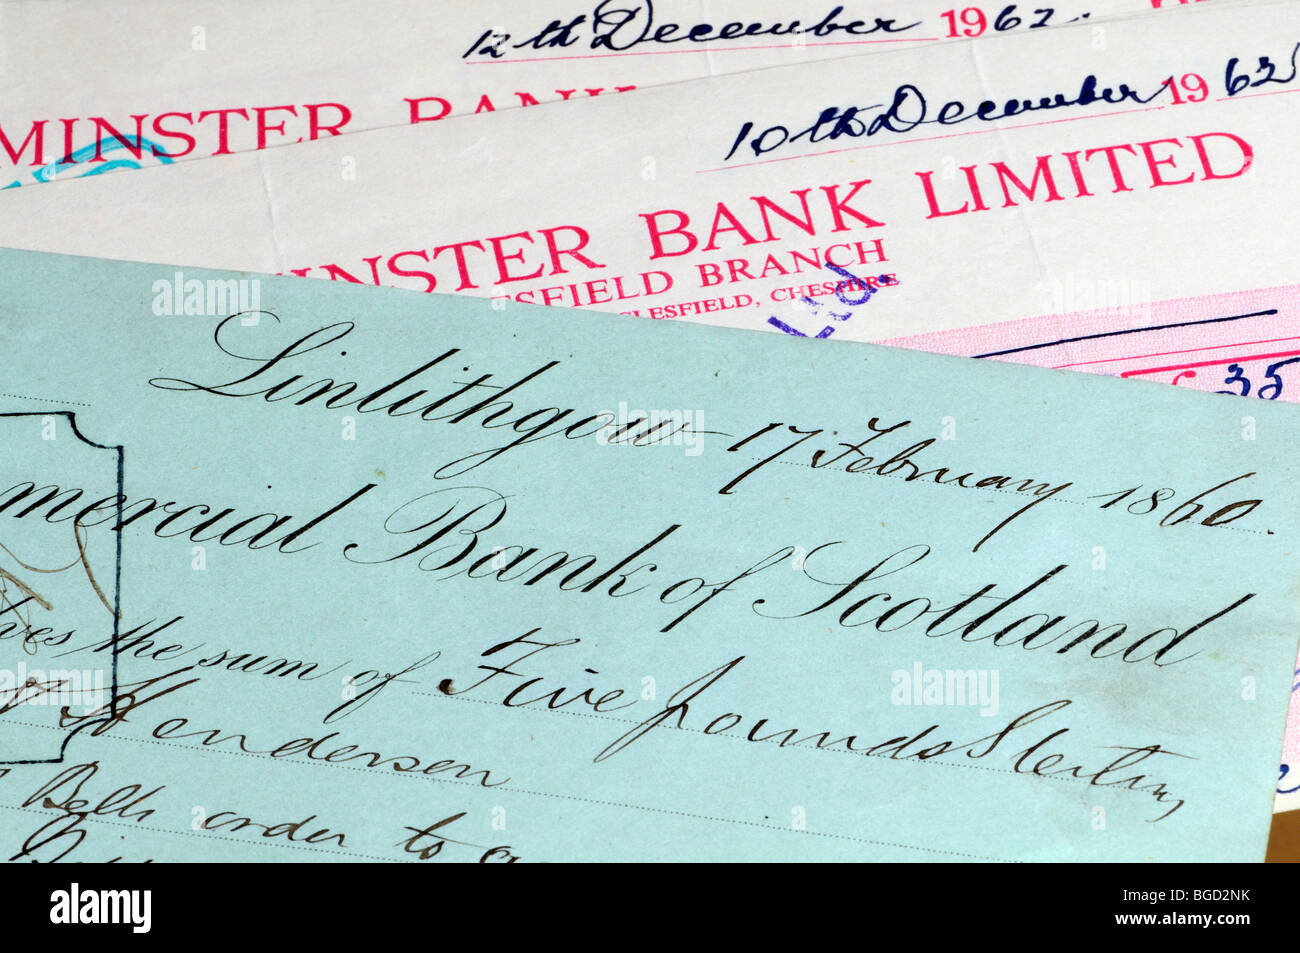 12th December 1962.
MINSTER BANK
10th December 1962
INSTER BANK LIMITED
ESFIELD BRANCH
CLESFIELD, CHESHIRE
Ltd.
35
Linlithgow 17 February 1860.
mercial Bank of Scotland
the sum of Five pounds Sterling
Henderson
order to
alamy
Image ID: BGD2NK
www.alamy.com